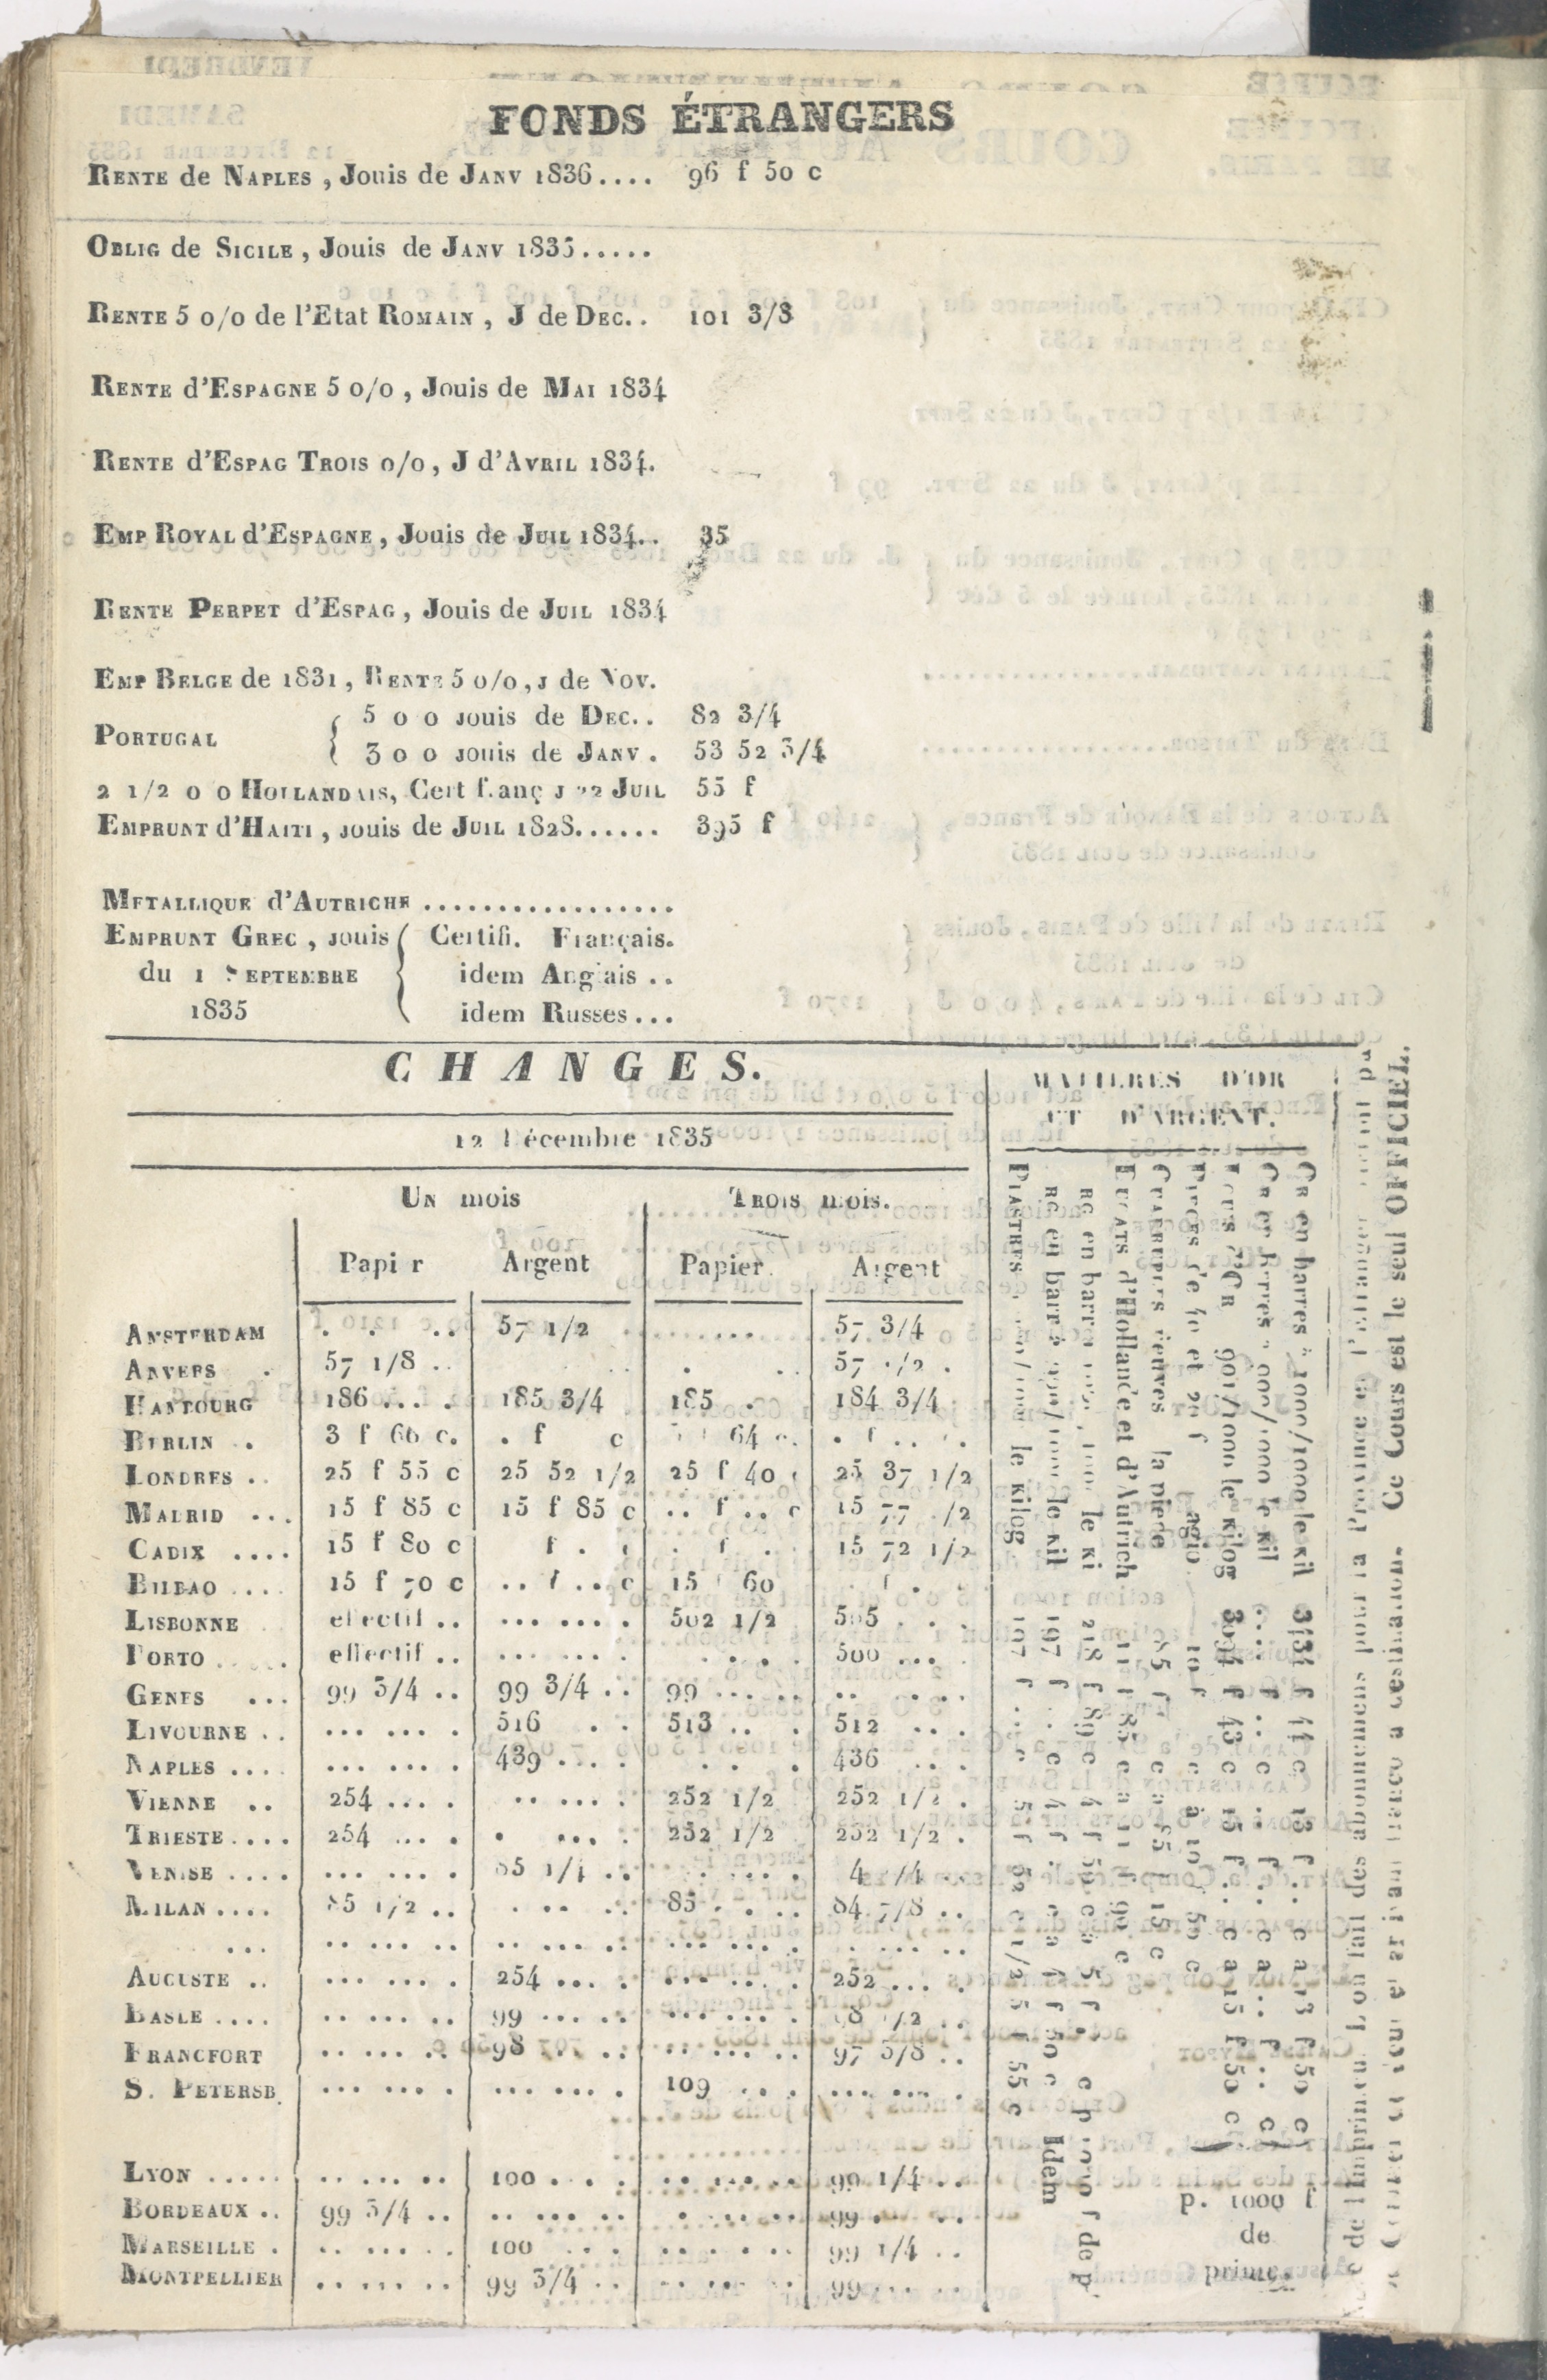 FONDS ÉTRANGERS
RENTE de NAPLES , Jouis de JANV 1836.... 96 f 50 c
OBLIG de SICILE , Jouis de JANV 1835.....
RENTE 5 o/o de l'Etat ROMAIN , J de DEC. . 101 3/8
RENTE d'ESPAGNE 5 o/o , Jouis de MAI 1834
RENTE d'ESPAG TROIS o/o, J d'AVRIL 1834.
EMP ROYAL d'ESPAGNE, Jouis de JUIL 1834.. 35
RENTE PERPET d'ESPAG, Jouis de JUIL 1834
EMP BELGE de 1831, RENTE 5 o/o, J de Nov.
PORTUGAL { 5 o o Jouis de DEC. . 82 3/4
3 o o Jouis de JANV . 53 52 3/4
2 1/2 o o HOLLANDAIS, Cert franç J 22 JUIL 55 f
EMPRUNT d'HAITI, Jouis de JUIL 1828...... 395 f
METALLIQUE d'AUTRICHE .................
EMPRUNT GREC , Jouis { Certifi. Français.
du 1 SEPTEMBRE idem Anglais . .
1835 idem Russes...
CHANGES.
12 Décembre 1835
UN mois TROIS mois.
Papi r Argent Papier Argent
AMSTERDAM . . .. 57 1/2 ....... 57 3/4
ANVERS . 57 1/8 .. . .. 57 1/2 .
HAMBOURG 186 ... . 185 3/4 185 . 184 3/4
BERLIN . . 3 f 66 c. . f c 64 c. . f .. .
LONDRES .. 25 f 55 c 25 52 1/2 25 f 40 25 37 1/2
MADRID ... 15 f 85 c 15 f 85 c .. f .. c 15 77 1/2
CADIX .... 15 f 80 c f . . f . 15 72 1/2
BILBAO .... 15 f 70 c .. f .. c 15 60 . f .
LISBONNE effectif .. ....... 502 1/2 505 . . .
PORTO ..... effectif .. ....... .... 500 ... .
GENES ... 99 3/4 .. 99 3/4 .. 99 ... .. .. ...
LIVOURNE .. ... ... . 516 . . 513 .. . 512 .. .
NAPLES .... ... ... . 439 ... . . . . 436 ...
VIENNE .. 254 ... . .. ... . 252 1/2 252 1/2 .
TRIESTE.... 254 ... . . ... . 252 1/2 252 1/2 .
VENISE .... ... ... . 85 1/4 ..
MILAN .... 85 1/2 .. . .. .. 85 . . .. 84 7/8 ..
... .. ... .. .. ... .. ... ... . . ... ..
AUGUSTE .. ... ... . 254 ... . ... ... . 252 ... .
BASLE .... .. ... .. 99 ... .. ... ... . 98 1/2 ..
FRANCFORT .. ... .. 98 .. .. .. ... .. 97 5/8 ..
S. PETERSB ... ... . ... ... . 109 ... ... ... .
LYON ..... .. ... .. 100 ... . .. ... .. 99 1/4 ..
BORDEAUX .. 99 3/4 .. .. ... .. . ... .. 99 . ..
MARSEILLE . .. ... .. 100 ... . .. ... .. 99 1/4 ..
MONTPELLIER .. ... .. 99 3/4 .. .. ... .. 99 ... ..
MATIERES D'OR
ET D'ARGENT.
OR en barres à 1000/1000 le kil 3434 f 44 c 13 f . . c a 13 f 50 c
OR en 900/1000 le kil . . . f . . c . . f . . c a . . f . . c
901/1000 le kilog 3094 f 43 c 15 f . . c a 15 f 50 c
PIECES de 40 et 20 f agio 10 f c à 10 f 50 c
QUADRUPLES la piece 85 f c a 85 f 15 c
DUCATS d'Hollande et d'Autrich 11 f 85 c a 11 f 90 c
en barre le ki 218 f 89 c 4 f 50 c a 5 f . c p 1000 f de p
en barre le kil 197 f . . c 4 f . c a 4 f 50 c Idem
PIASTRES le kilog 197 f . . c 5 f 52 c 1/2 5 f 55 c
p. 1000 f
de
prime.
des abonnemens pour la Province et l'Etranger
Ce Cours est le seul OFFICIEL.